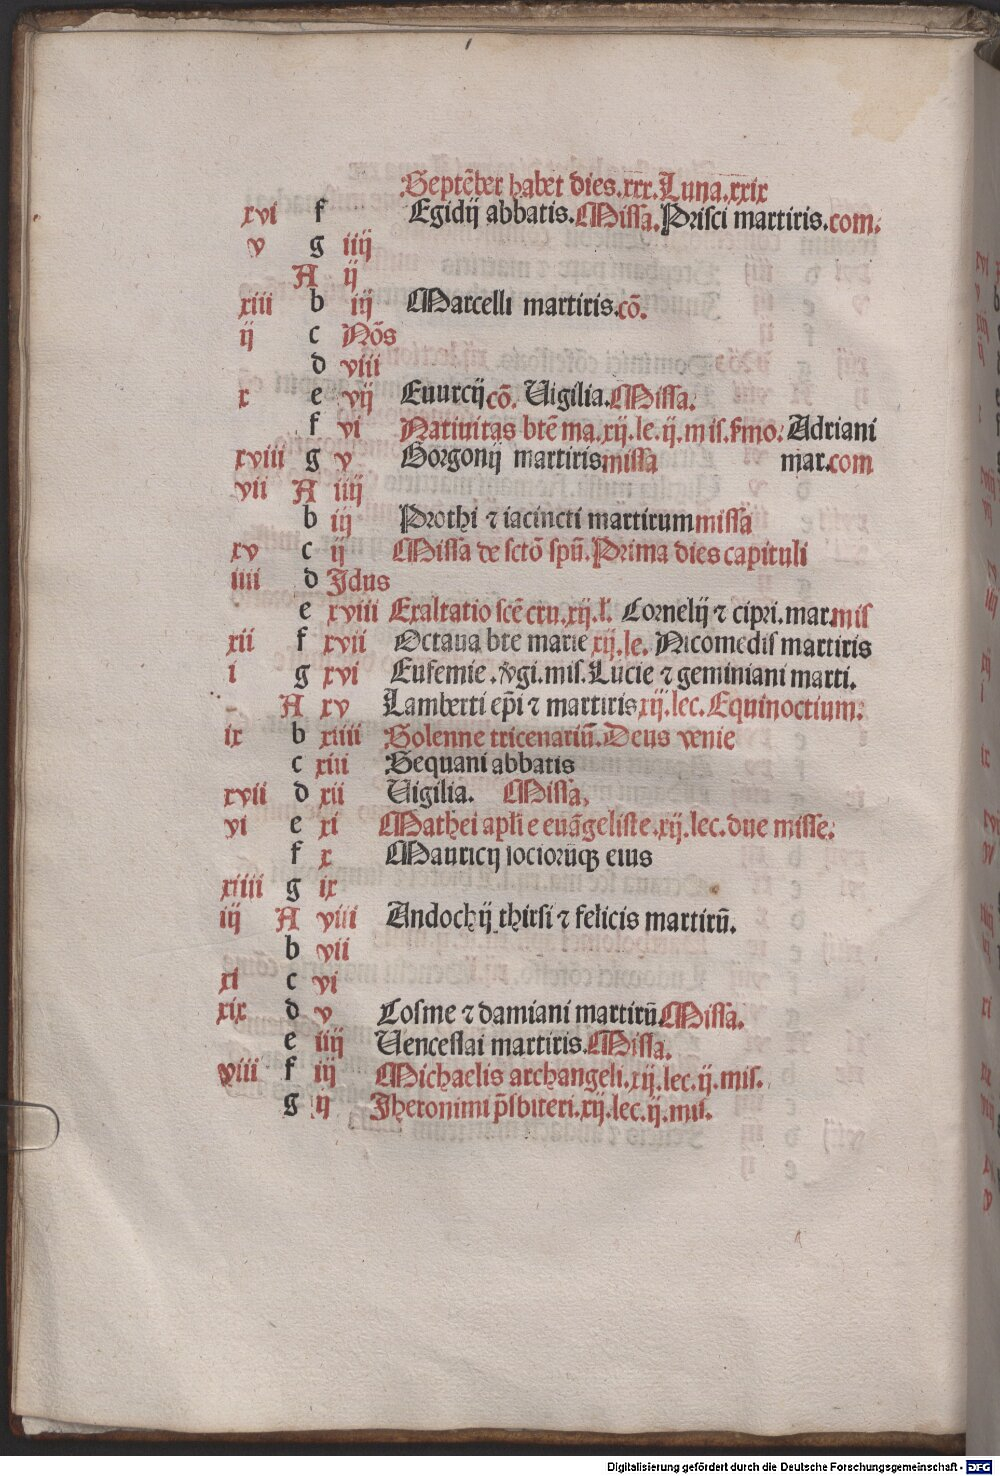 Septēber habet dies.xxx.Luna.xxix
xvi f Egidij abbatis.Missa.Prisci martiris.com.
v g iiij
A ij
xiii b iij Marcelli martiris.cō.
ij c Nōs
d viii
x e vij Euurcij cō. Uigilia.Missa.
f vi Natiuitas btē ma.xij.le.ij.mis.f̄mo. Adriani
xviii g v Gorgonij martiris missa mar.com
vii A iiij
b iij Prothi ⁊ iacincti martirum missa
xv c ij Missa de sctō spū.Prima dies capituli
iiii d Idus
e xviii Exaltatio scē cru.xij.l. Cornelij ⁊ cipri.mar.mis
xii f xvii Octaua bte marie xij.le. Nicomedis martiris
i g xvi Eufemie .v̄gi.mis.Lucie ⁊ geminiani marti.
A xv Lamberti ep̄i ⁊ martiris xij.lec.Equinoctium.
ix b xiiii Solenne tricenariū.Deus venie
c xiii Sequani abbatis
xvii d xii Uigilia. Missa,
vi e xi Mathei apl̄i e euāgeliste.xij.lec.due misse.
f x Mauricij sociorūqꝫ eius
xiiii g ix
iij A viii Andochij thirsi ⁊ felicis martirū.
b vii
xi c vi
xix d v Cosme ⁊ damiani martirū.Missa.
e iiij Uenceslai martiris.Missa.
viii f iij Michaelis archangeli.xij.lec.ij.mis.
g ij Jheronimi p̄sbiteri.xij.lec.ij.mis.
Digitalisierung gefördert durch die Deutsche Forschungsgemeinschaft - DFG